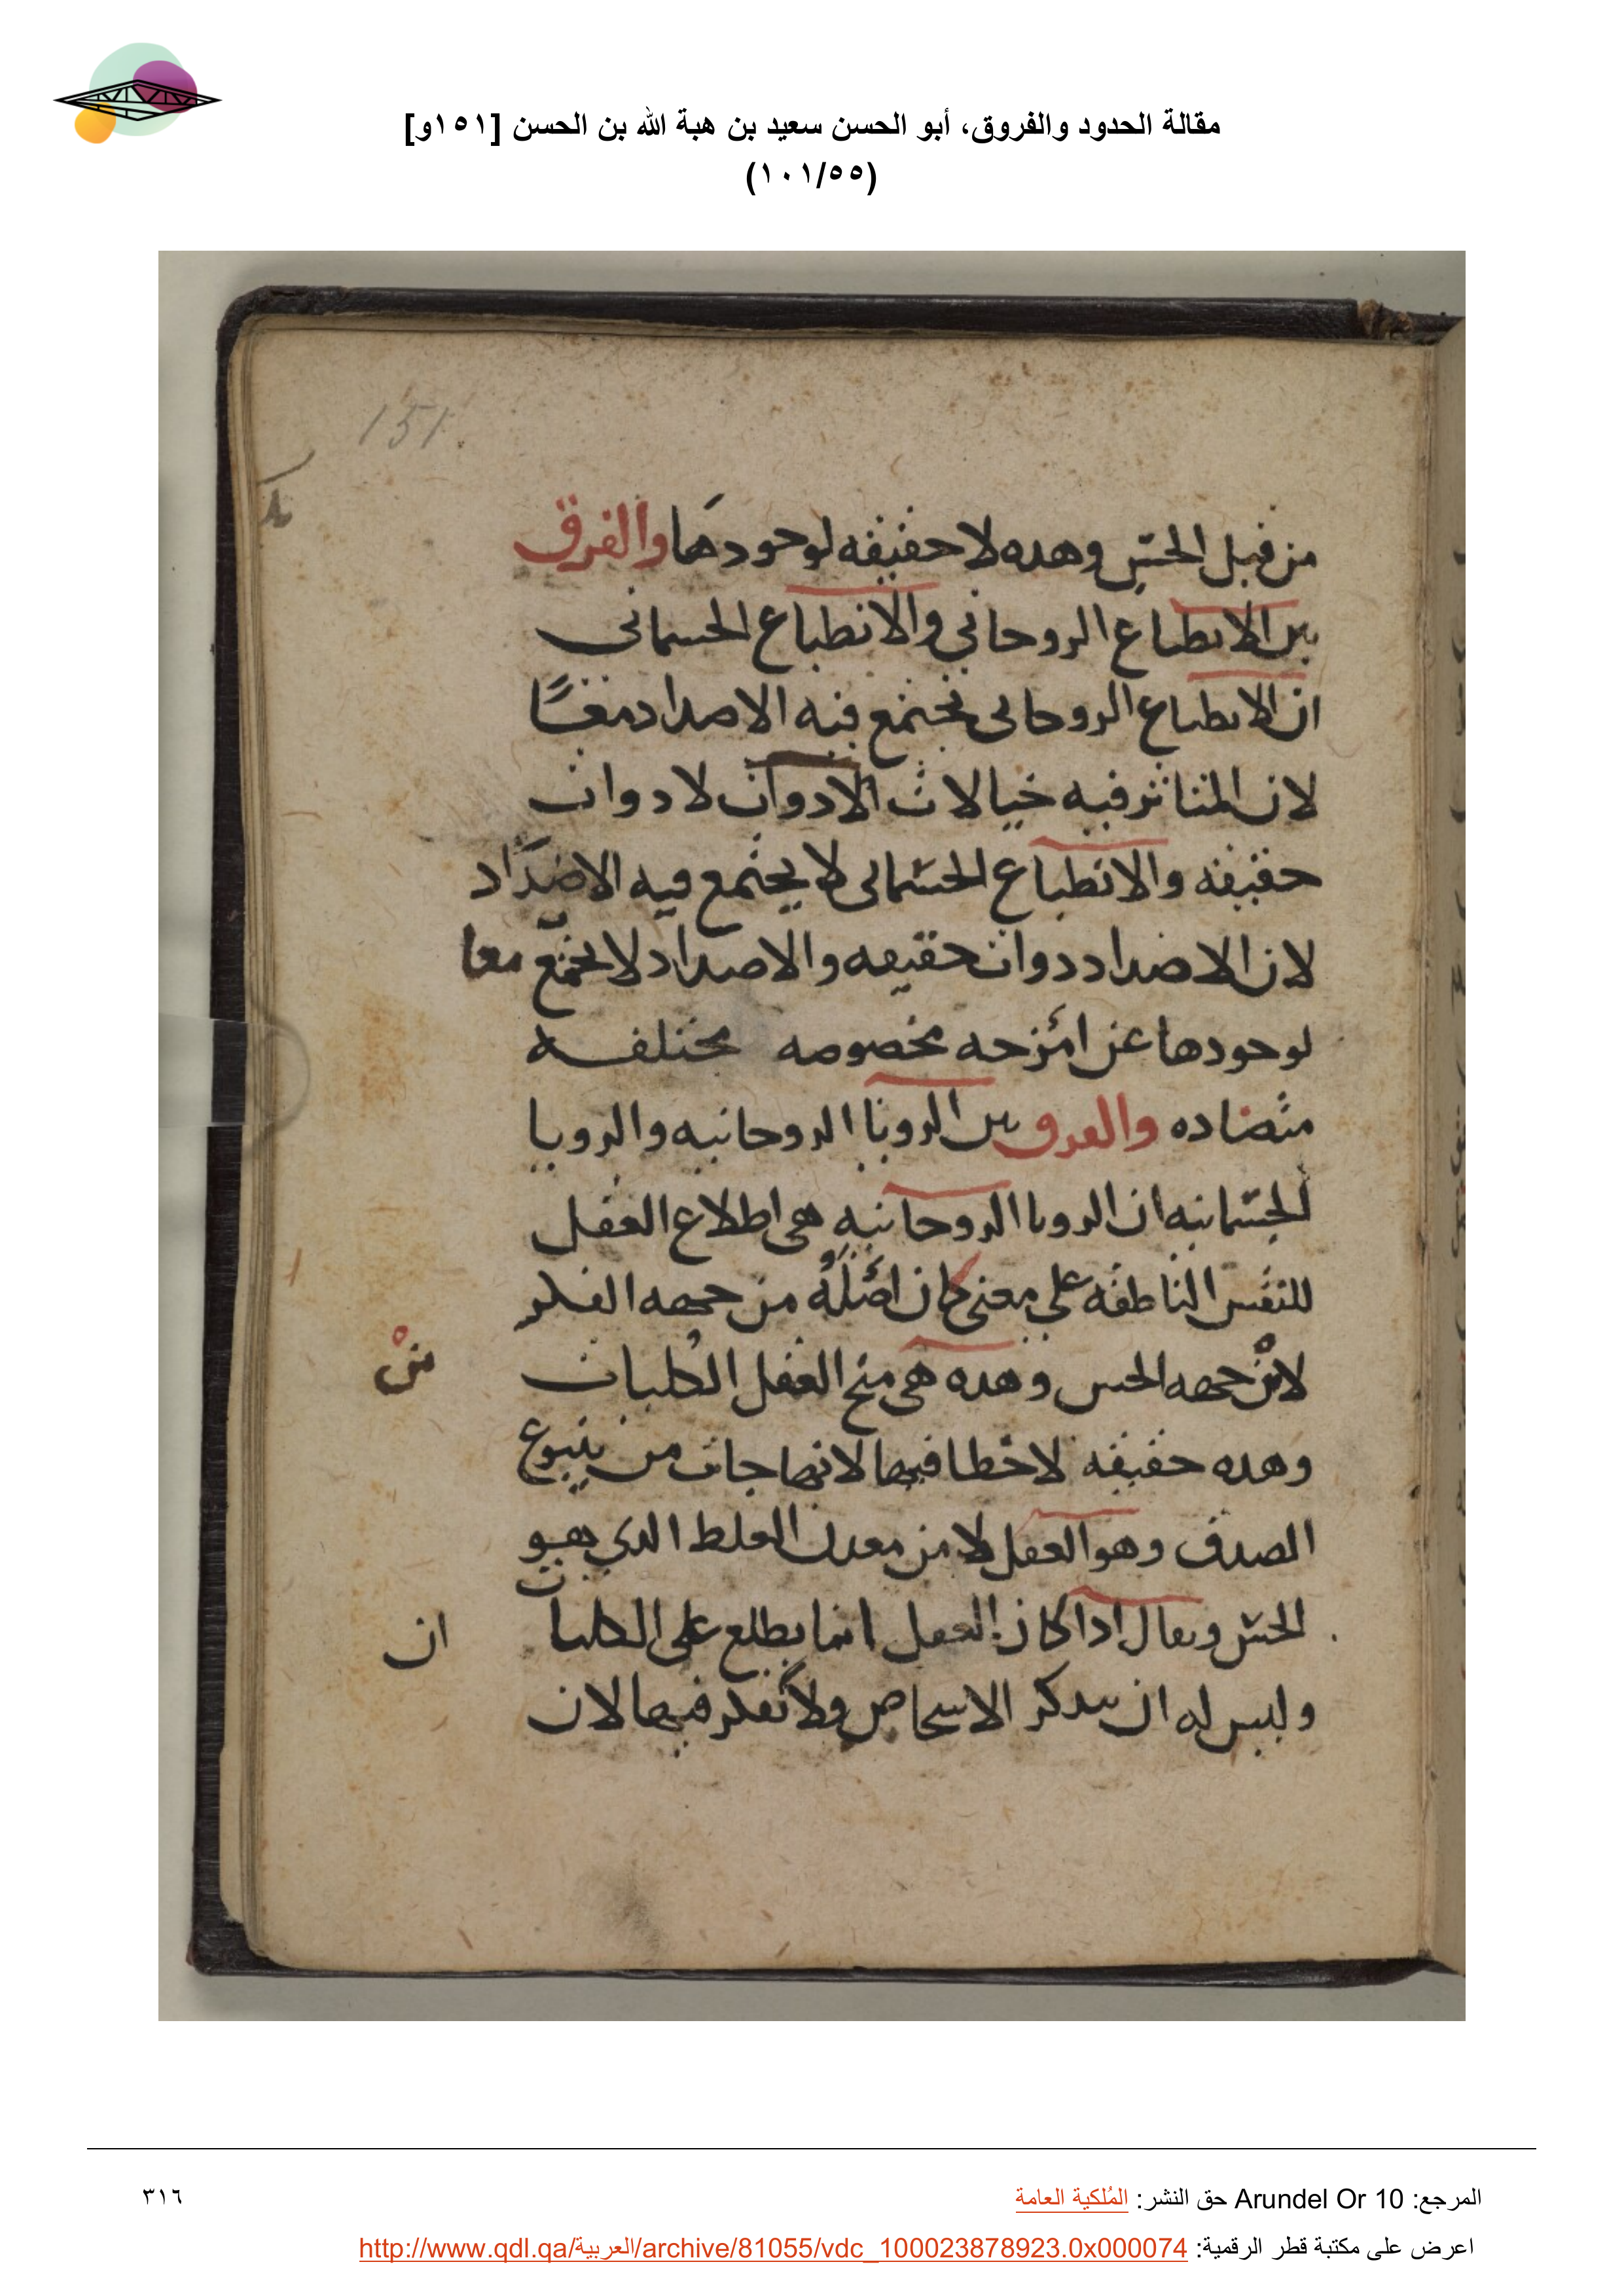 مقالة الحدود والفروق، أبو الحسن سعيد بن هبة الله بن الحسن [١٥١و]
(١٠١/٥٥)
151.
من قبل الحسّ وهده لا حقيقه لوجودها والفرق
بين الانطباع الروحاني والانطباع الجسماني
ان الانطباع الروحاني يجتمع فيه الاضداد معًا
لان المتناثر فيه خيالات الادوات لا دوات
حقيقه والانطباع الجسماني لا يجتمع فيه الاضداد
لان الاضداد دوات حقيقه والاضداد لا تجتمع معا
لوجودها عن امزجه مخصوصه مختلفه
متضاده والفرق بين الرويا الروحانيه والرويا
الجسمانيه ان الرويا الروحانيه هي اطلاع العقل
للنفس الناطقه على معنى كان اصله من جهه الفكر
لا من جهه الحس وهده هي منح العقل الكليات
من
وهده حقيقه لا خطا فيها لانها جات من ينبوع
الصدق وهو العقل لا من معدن الغلط الدي هو
الحس ويقال ادا كان العقل انما يطلع على الكليات
ان
وليس له ان يتدكر الاشخاص ولا يفكر فيها لان
المرجع: Arundel Or 10 حق النشر: المُلكية العامة
٣١٦
اعرض على مكتبة قطر الرقمية: http://www.qdl.qa/العربية/archive/81055/vdc_100023878923.0x000074